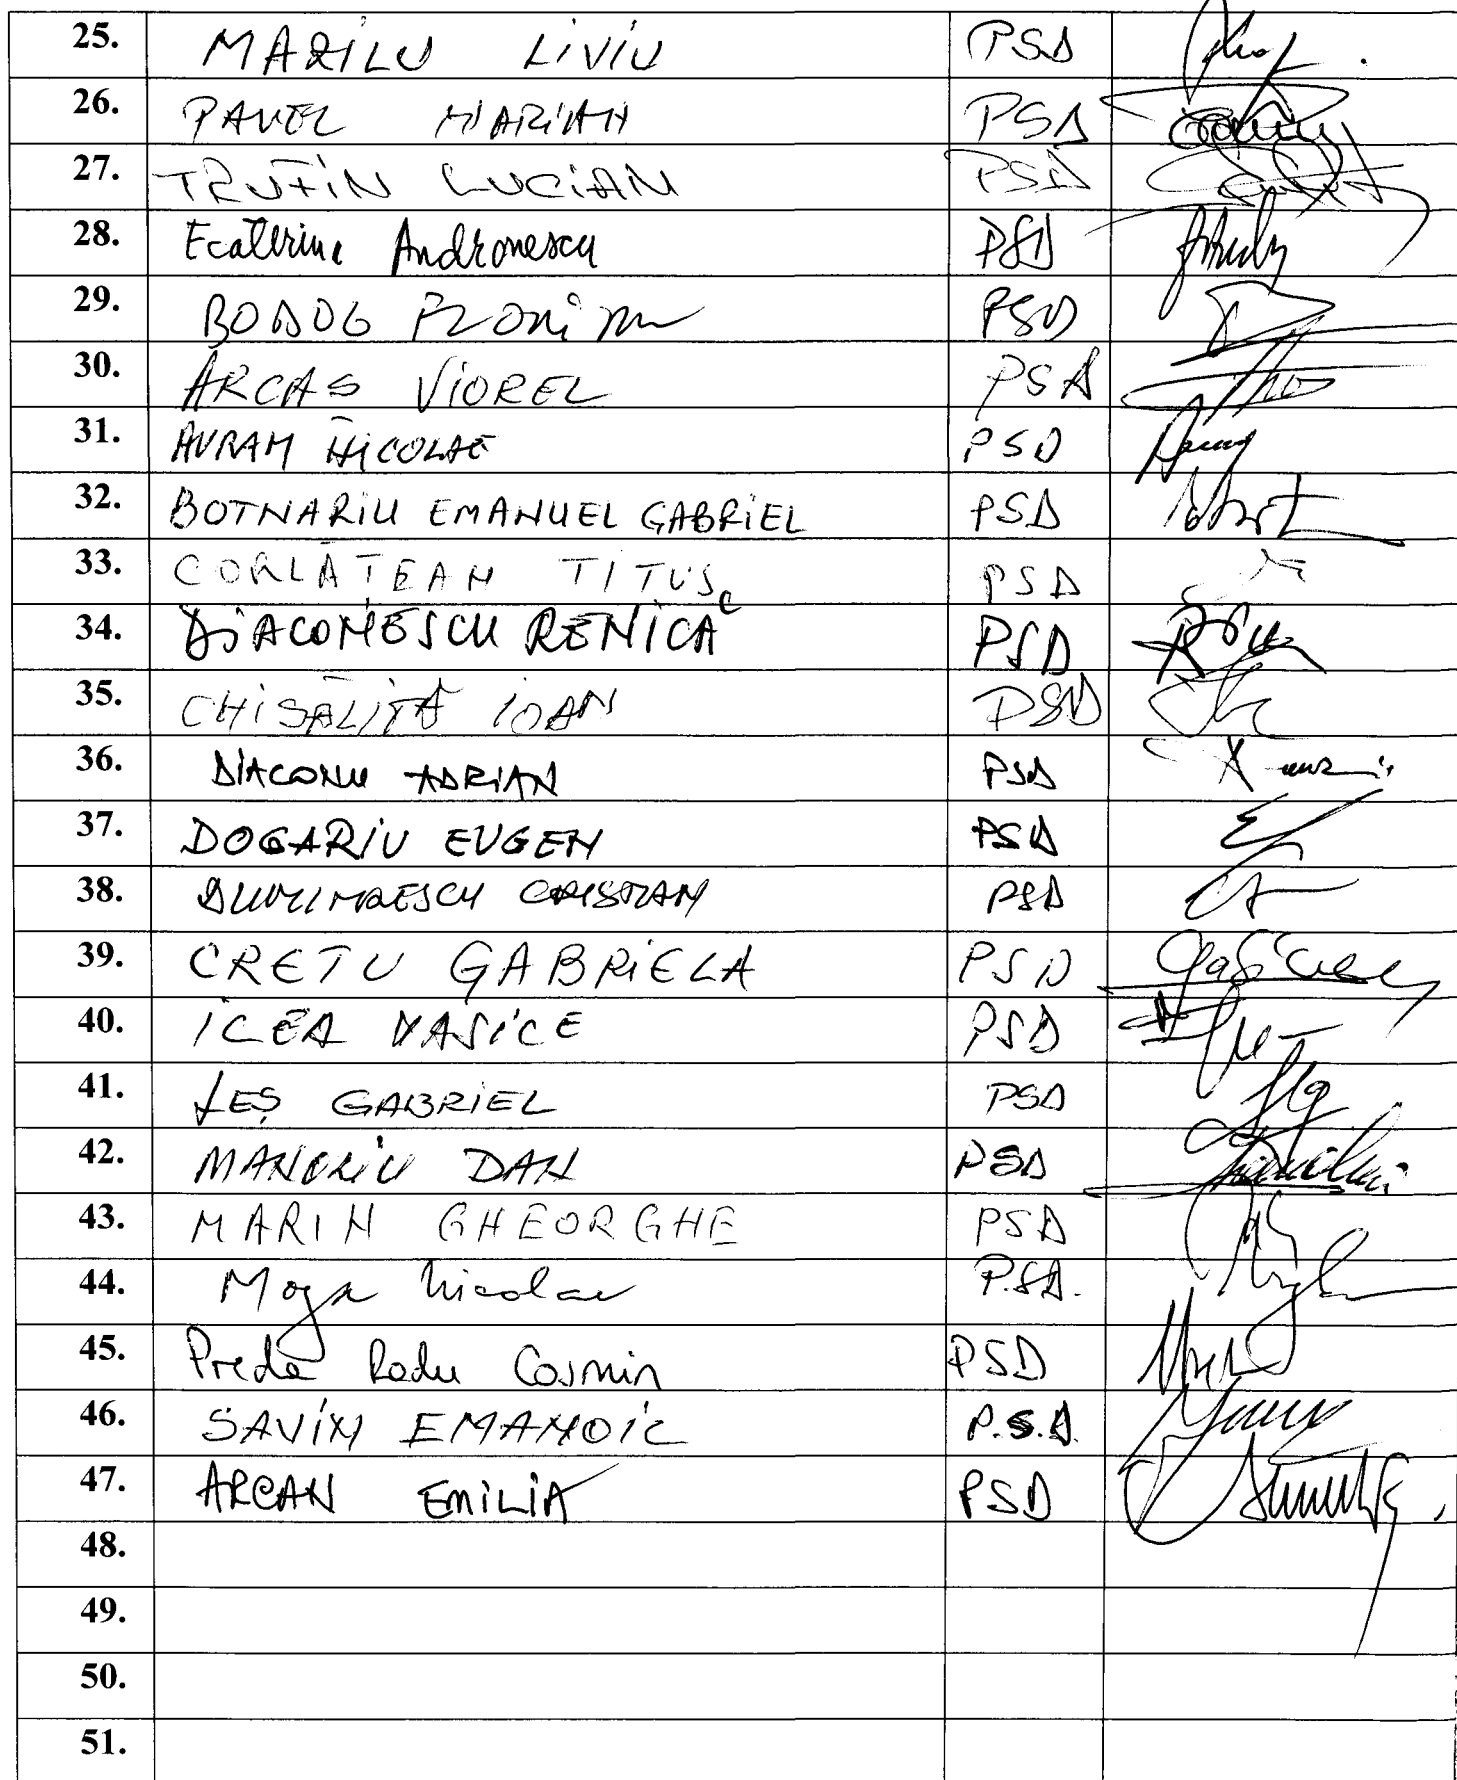 25. MARILU LIVIU PSD
26. PAVEL MARIAN PSD
27. TRUFIN LUCIAN PSD
28. Ecaterina Andronescu PSD
29. BODOG FLORIAN PSD
30. ARCAS VIOREL PSD
31. AVRAM NICOLAE PSD
32. BOTNARIU EMANUEL GABRIEL PSD
33. CORLĂȚEAN TITUS PSD
34. DIACONESCU RENICA PSD
35. CHISALIȚĂ IOAN PSD
36. DIACONU ADRIAN PSD
37. DOGARIU EUGEN PSD
38. DUMITRESCU CRISTIAN PSD
39. CRETU GABRIELA PSD
40. ILEA VASILE PSD
41. LEȘ GABRIEL PSD
42. MANOLIU DAN PSD
43. MARIN GHEORGHE PSD
44. Moga Nicolae P.S.D.
45. Preda Radu Cosmin PSD
46. SAVIN EMANOIL P.S.D.
47. ARCAN EMILIA PSD
48.
49.
50.
51.